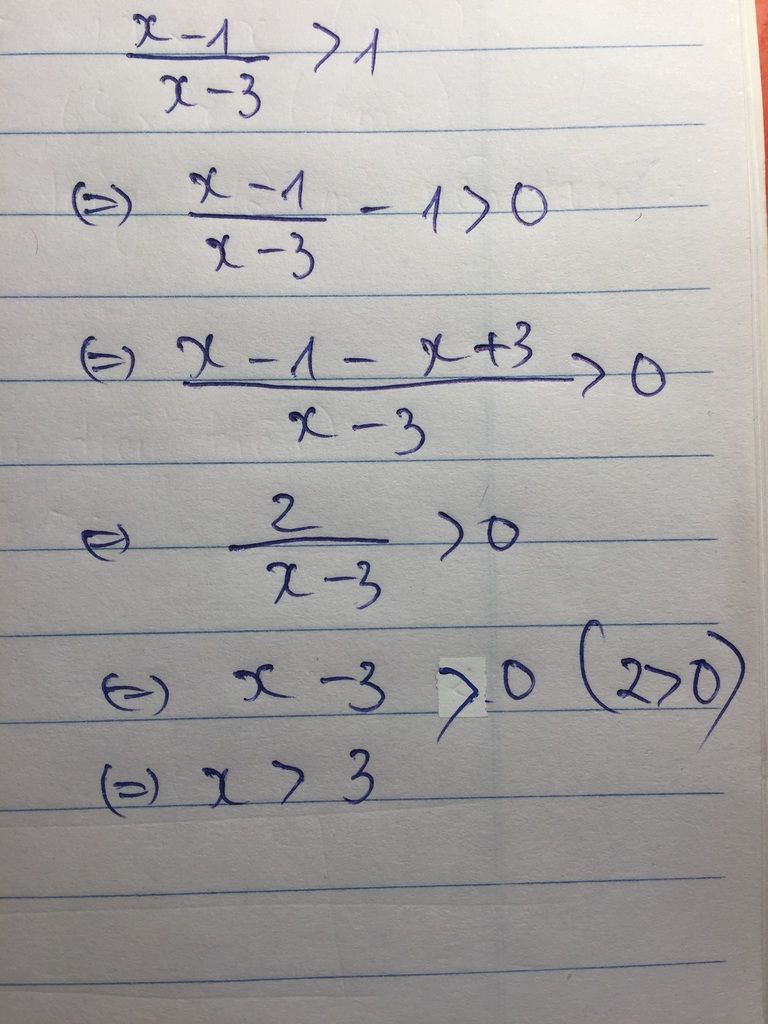 (x-1)/(x-3) > 1
(=) (x-1)/(x-3) - 1 > 0
(=) (x-1-x+3)/(x-3) > 0
(=) 2/(x-3) > 0
(=) x-3 > 0 (2>0)
(=) x > 3